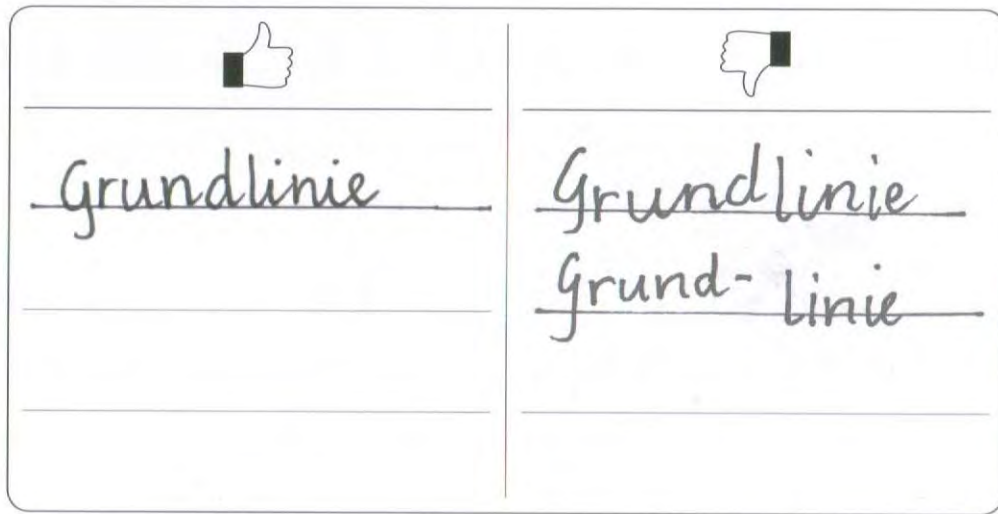 Grundlinie
Grundlinie
Grund- linie